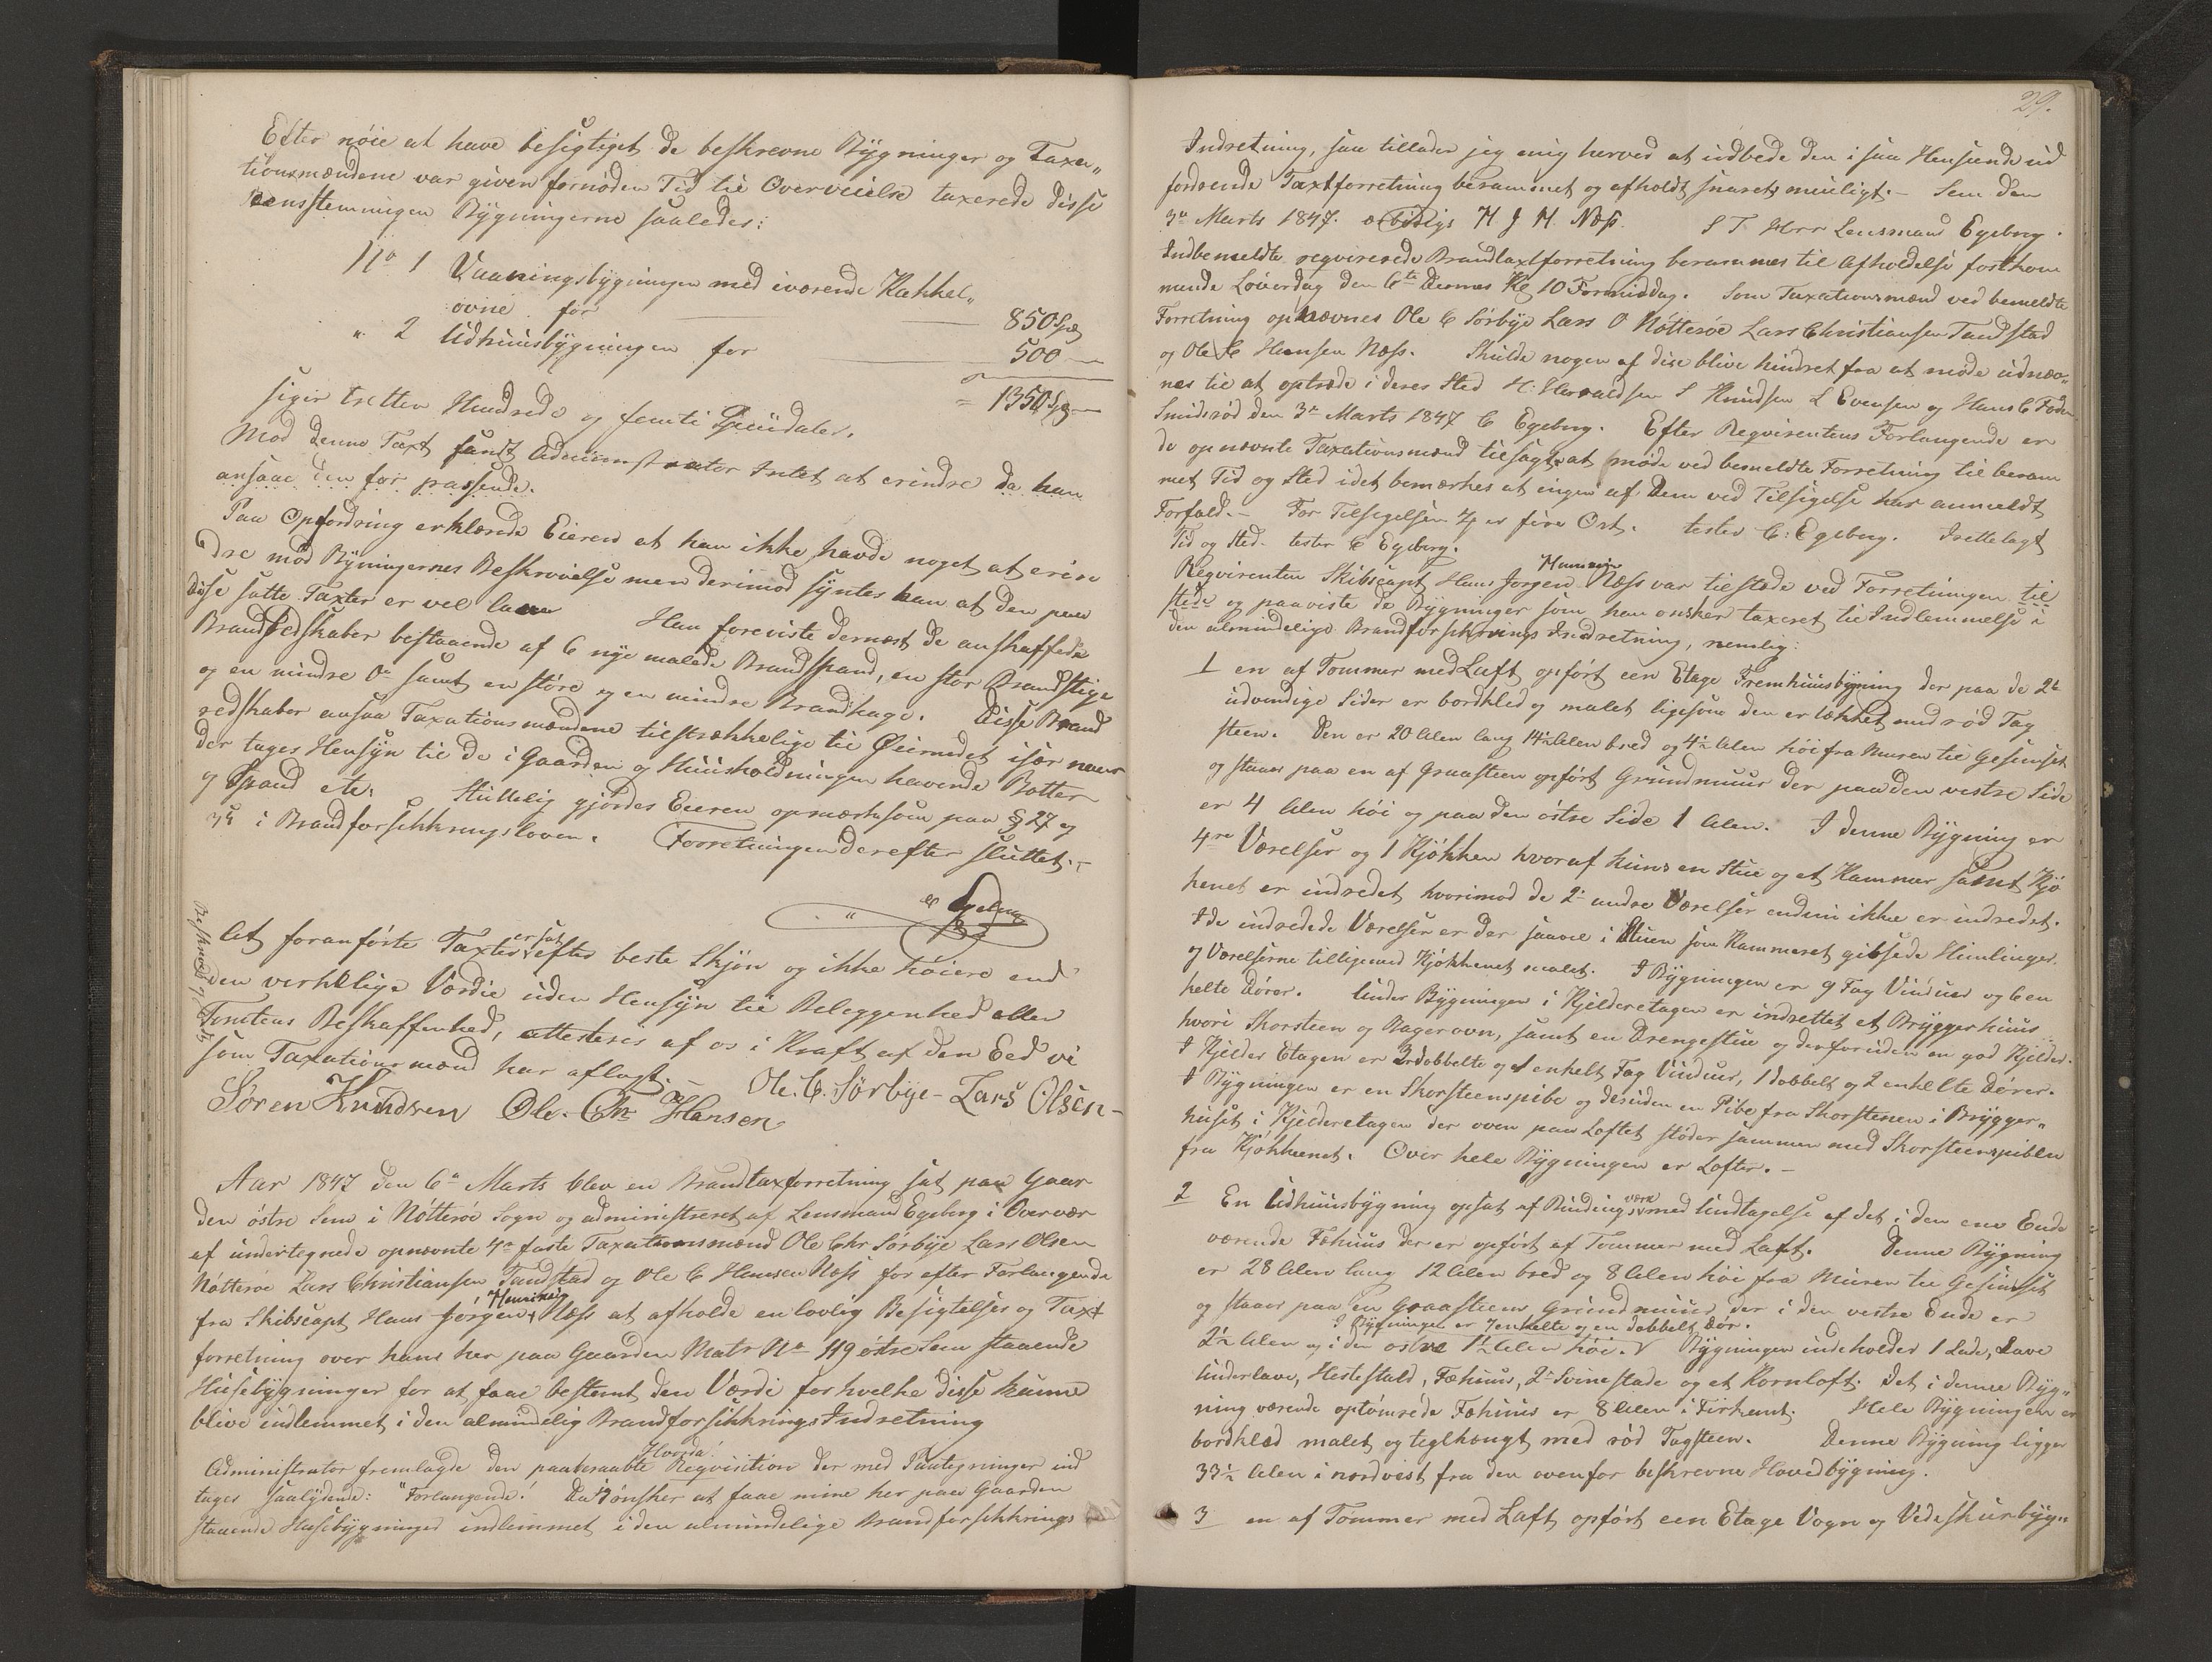 Efter nöie at have besigtiget de beskrevne Bygninger og Taxa„
tionsmændene var given fornöden Tid til Overveielse taxerede disse
eenstemmigen Bygningerne saaledes:
No 1 Vaaningsbygningen med iværende Kakkel„
ovne for 850 Spd
" 2 Udhuusbygningen for 500 "
= 1350 Spd
siger tretten Hundrede og femti Speciedaler.
Mod denne Taxt fandt Administrator Intet at erindre da han
ansaae den for passende.
Paa Opfordring erklærede Eieren at han ikke havde noget at erin
dre mod Bygningernes Beskrivelse men derimod syntes han at den paa
disse satte Taxter er vel lave Han foreviste dernæst de anskaffede
Brandredskaber bestaaende af 6 nye malede Brandspand, en stor Brandstige
og en mindre Do samt en störe og en mindre Brandhage. Disse Brand
redskaber ansaa Taxationsmændene tilstrækkelige til Öiemedet især naar
der tages Hensyn til de i Gaarden og Huusholdningen havende Bötter
og Spand etc. Sluttelig gjordes Eieren opmærksom paa § 27 og
34 i Brandforsikkringsloven. Forretningen derefter sluttet.–
C Egeberg
At foranförte Taxter er sat efter beste Skjön og ikke höiere end
den verkelige Værdie uden Hensyn til Beleggenhed eller
Tomtens Beskaffenhed, attesteres af os i Kraft af den Eed vi
som Taxationsmænd har aflagt.
Ole. C. Sörbÿe – Lars Olsen –
Sören Knudsen Ole. Chr Hansen
Aar 1847 den 6te Marts blev en Brandtaxforretning sat paa Gaar
den östre Sem i Nötteröe Sogn og administreret af Lensmand Egeberg i Overvær
af undertegnede opnævnte 4re faste Taxationsmænd Ole Chr Sörbÿe Lars Olsen
Nötteröe Lars Christiansen Tandstad og Ole C Hansen Næss for efter Forlangende
fra Skibscapt Hans Jörgen Henning Næss at afholde en lovlig Besigtelses og Taxt
forretning over hans her paa Gaarden Matr No 119 östre Sem staaende
Huusebygninger for at faae bestemt den Værdi for hvilke disse kunne
blive indlemmet i den almindelig Brandforsikkrings Indretning
Administrator fremlagde den paaberaabte Requisition der med Paategninger ind
tages saalydende: "Forlangende! Da I önsker at faae mine her paa Gaarden
staaende Husebygninger indlemmet i den almindelige Brandforsikkrings
29.
Indretning, saa tillader jeg mig herved at udbede den i saa Henseende ud
fordrende Taxtforretning berammet og afholdt snarets mueligt.– Sem den
3de Marts 1847. ærbödigst H J H. Næss. S T Herr Lensmand Egeberg.
Indbemeldte requirerede Brandtaxtforretning berammes til Afholdelse forstkom
mende Löverdag den 6te dennes Kl 10 Formiddag. Som Taxationsmænd ved bemeldte
Forretning opnævnes Ole C Sörbye Lars O Nötteröe Lars Christiansen Tandstad
og Ole C Hansen Næss. Skulde nogen af disse blive hindret fra at møde udnæv„
nes til at optræde i deres Sted H. Haraldsen S Knudsen L Evensen og Hans C
Smidsröd den 3de Marts 1847 C Egeberg. Efter Requirentens Forlangende er
de opnævnte Taxationsmænd tilsagt at möde ved bemeldte Forretning til beram
met Tid og Sted idet bemærkes at ingen af Dem ved Tilsigelse har anmeldt
Forfald.– For Tilsigelsen er fire Ort. tester C: Egeberg. Irettelagt
Tid og Sted. tester C Egeberg.
Requirenten Skibscapt Hans Jörgen Henning Næss var tilstede ved Forretningen til
stede og paaviste de Bygninger som han önsker taxeret til Indlemmelse i
den almindelige Brandforsikrings Indretning, nemlig:
1 en af Tommer med Laft opfört een Etage Fremhuusbygning der paa de 2de
udvendige Sider er bordkled og malet ligesom den er tækket med röd Tag
steen. Den er 20 Alen lang 14½ Alen bred og 4½ Alen höi fra Muren til Gesimset
og staaer paa en af Graasteen opfört Grundmuur der paa den vestre Side
er 4 Alen höi og paa den östre Side 1 Alen. I denne Bygning er
4re Værelser og 1 Kjökken hvoraf kuns en Stue og et Kammer samt Kjö
kenet er indredet hvorimod de 2de andre Værelser endnu ikke er indredet.
I de indredede Værelser er der saavel i Stuen som Kammeret gibsede Himlinger
og Værelserne tilligemed Kjökkenet malet. I Bygningen er 9 Fag Vinduer og 6 en
kelte Dörer. Under Bygningen i Kjelderetagen er indrettet et Bryggerhuus
hvori Skorsteen og Bagerovn, samt en Drengestue og derforuden en god Kjelder.
I Kjelder Etagen er 3 dobbelte og 1 enkelt Fag Vinduer, 1 dobbelt og 2 enkelte Dörer.
I Bygningen er en Skorsteenspibe og desuden en Pibe fra Skorstenen i Brygger„
huset i Kjelderetagen der oven paa Loftet stöder sammen med Skorsteenspiben
fra Kjökkenet. Over hele Bygningen er Lofter.–
2 En Udhuusbygning opsat af Bindingsværk med Undtagelse af det i den ene Ende
værende Fæhuus der er opfört af Tommer med Laft. Denne Bygning
er 28 Alen lang 12 Alen bred og 8 Alen höi fra Muren til Gesimset
og staaer paa en Graasteens Grundmuur der i den vestre Ende er
2½ Alen og i den östre 1½ Alen höi. I Bygningen er 7 enkelte og en dobbelt Dör. Bygningen indeholder 1 Lade, Lave
Underlave, Hestestald, Fæhuus, 2de Svinestade og et Kornloft. Det i denne Byg„
ning værende optömrede Fæhuus er 8 Alen i Firkant. Hele Bygningen er
bordkled malet og teglhængt med röd Tagsteen. Denne Bygning ligger
33½ Alen i nordvest fra den ovenfor beskrevne Hovedbygning.
3 en af Tommer med Laft opfört een Etage Vogn og Vedeskurbyg„